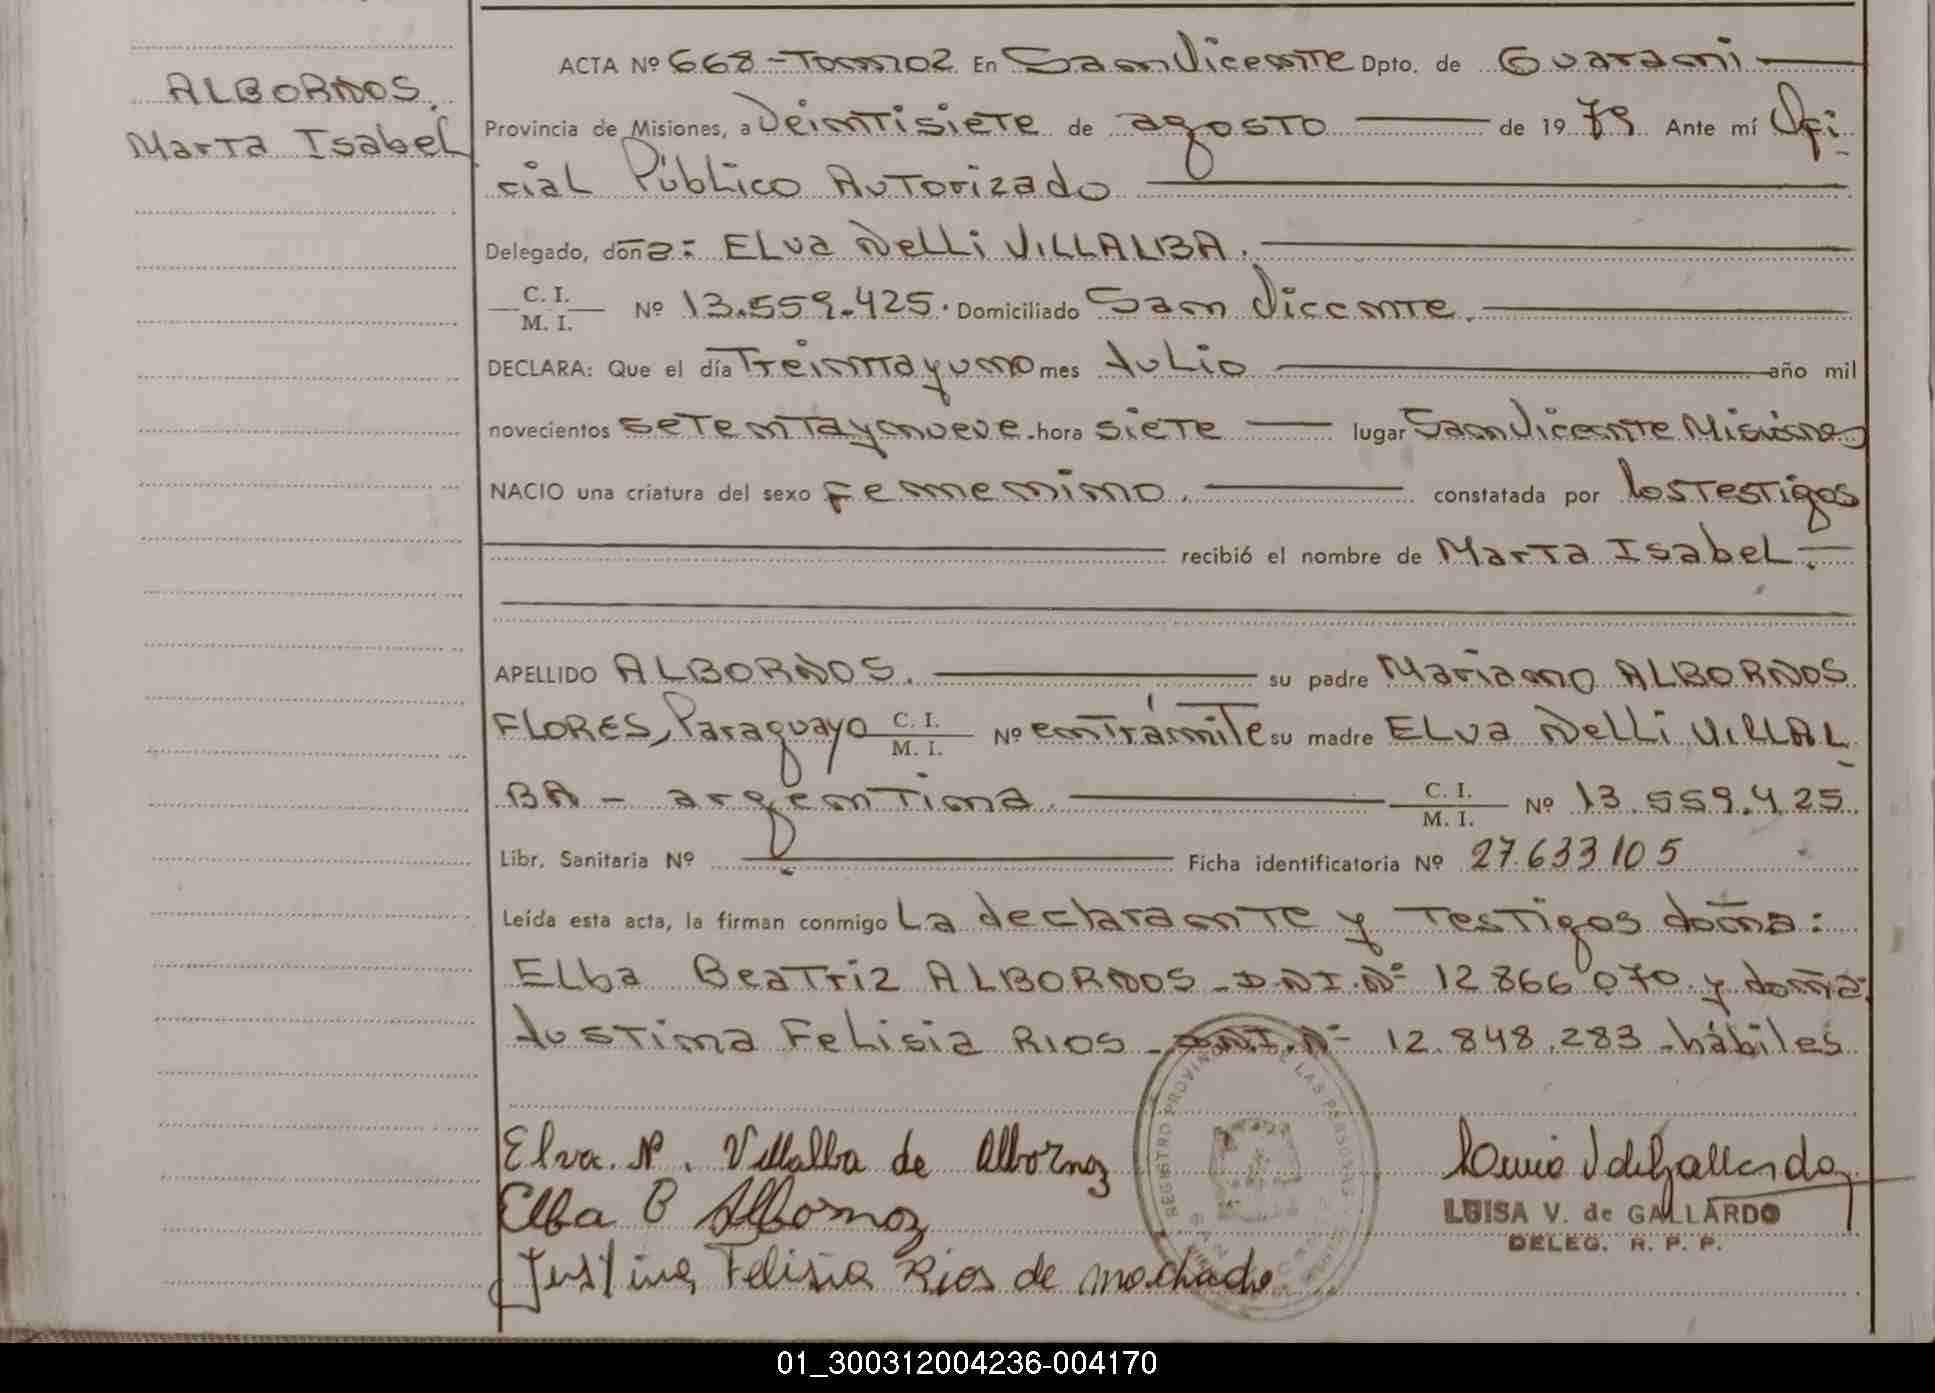 ALBORNOS.
Marta Isabel
ACTA Nº 668 - Tomo 2 En San Vicente Dpto. de Guarani
Provincia de Misiones, a Veintisiete de agosto de 1979 Ante mí Ofi-
cial Público Autorizado
Delegado, doña: ELva Nelli VILLALBA.
C. I.
M. I. Nº 13.559.425. Domiciliado San Vicente.
DECLARA: Que el día Treintayuno mes Julio año mil
novecientos setentaynueve. hora siete lugar San Vicente Misiones
NACIO una criatura del sexo femenino. constatada por los testigos
recibió el nombre de Marta Isabel.
APELLIDO ALBORNOS. su padre Mariano ALBORNOS
FLORES, Paraguayo C. I. M. I. Nº en trámite su madre ELva Nelli VILLAL-
BA - argentina. C. I. M. I. Nº 13.559.425
Libr. Sanitaria Nº Ficha identificatoria Nº 27.633105
Leída esta acta, la firman conmigo La declarante y Testigos doña:
Elba Beatriz ALBORNOS - D.N.I. Nº 12.866.070 y doña
Justina Felisia RIOS - D.N.I. Nº 12.848.283 - hábiles
Elva. N. Villalba de Albornoz
Elba B Albornoz
Justina Felisia Rios de Machado
REGISTRO PROVINCIAL DE LAS PERSONAS
LUISA V. de GALLARDO
DELEG. R. P. P.
01_300312004236-004170